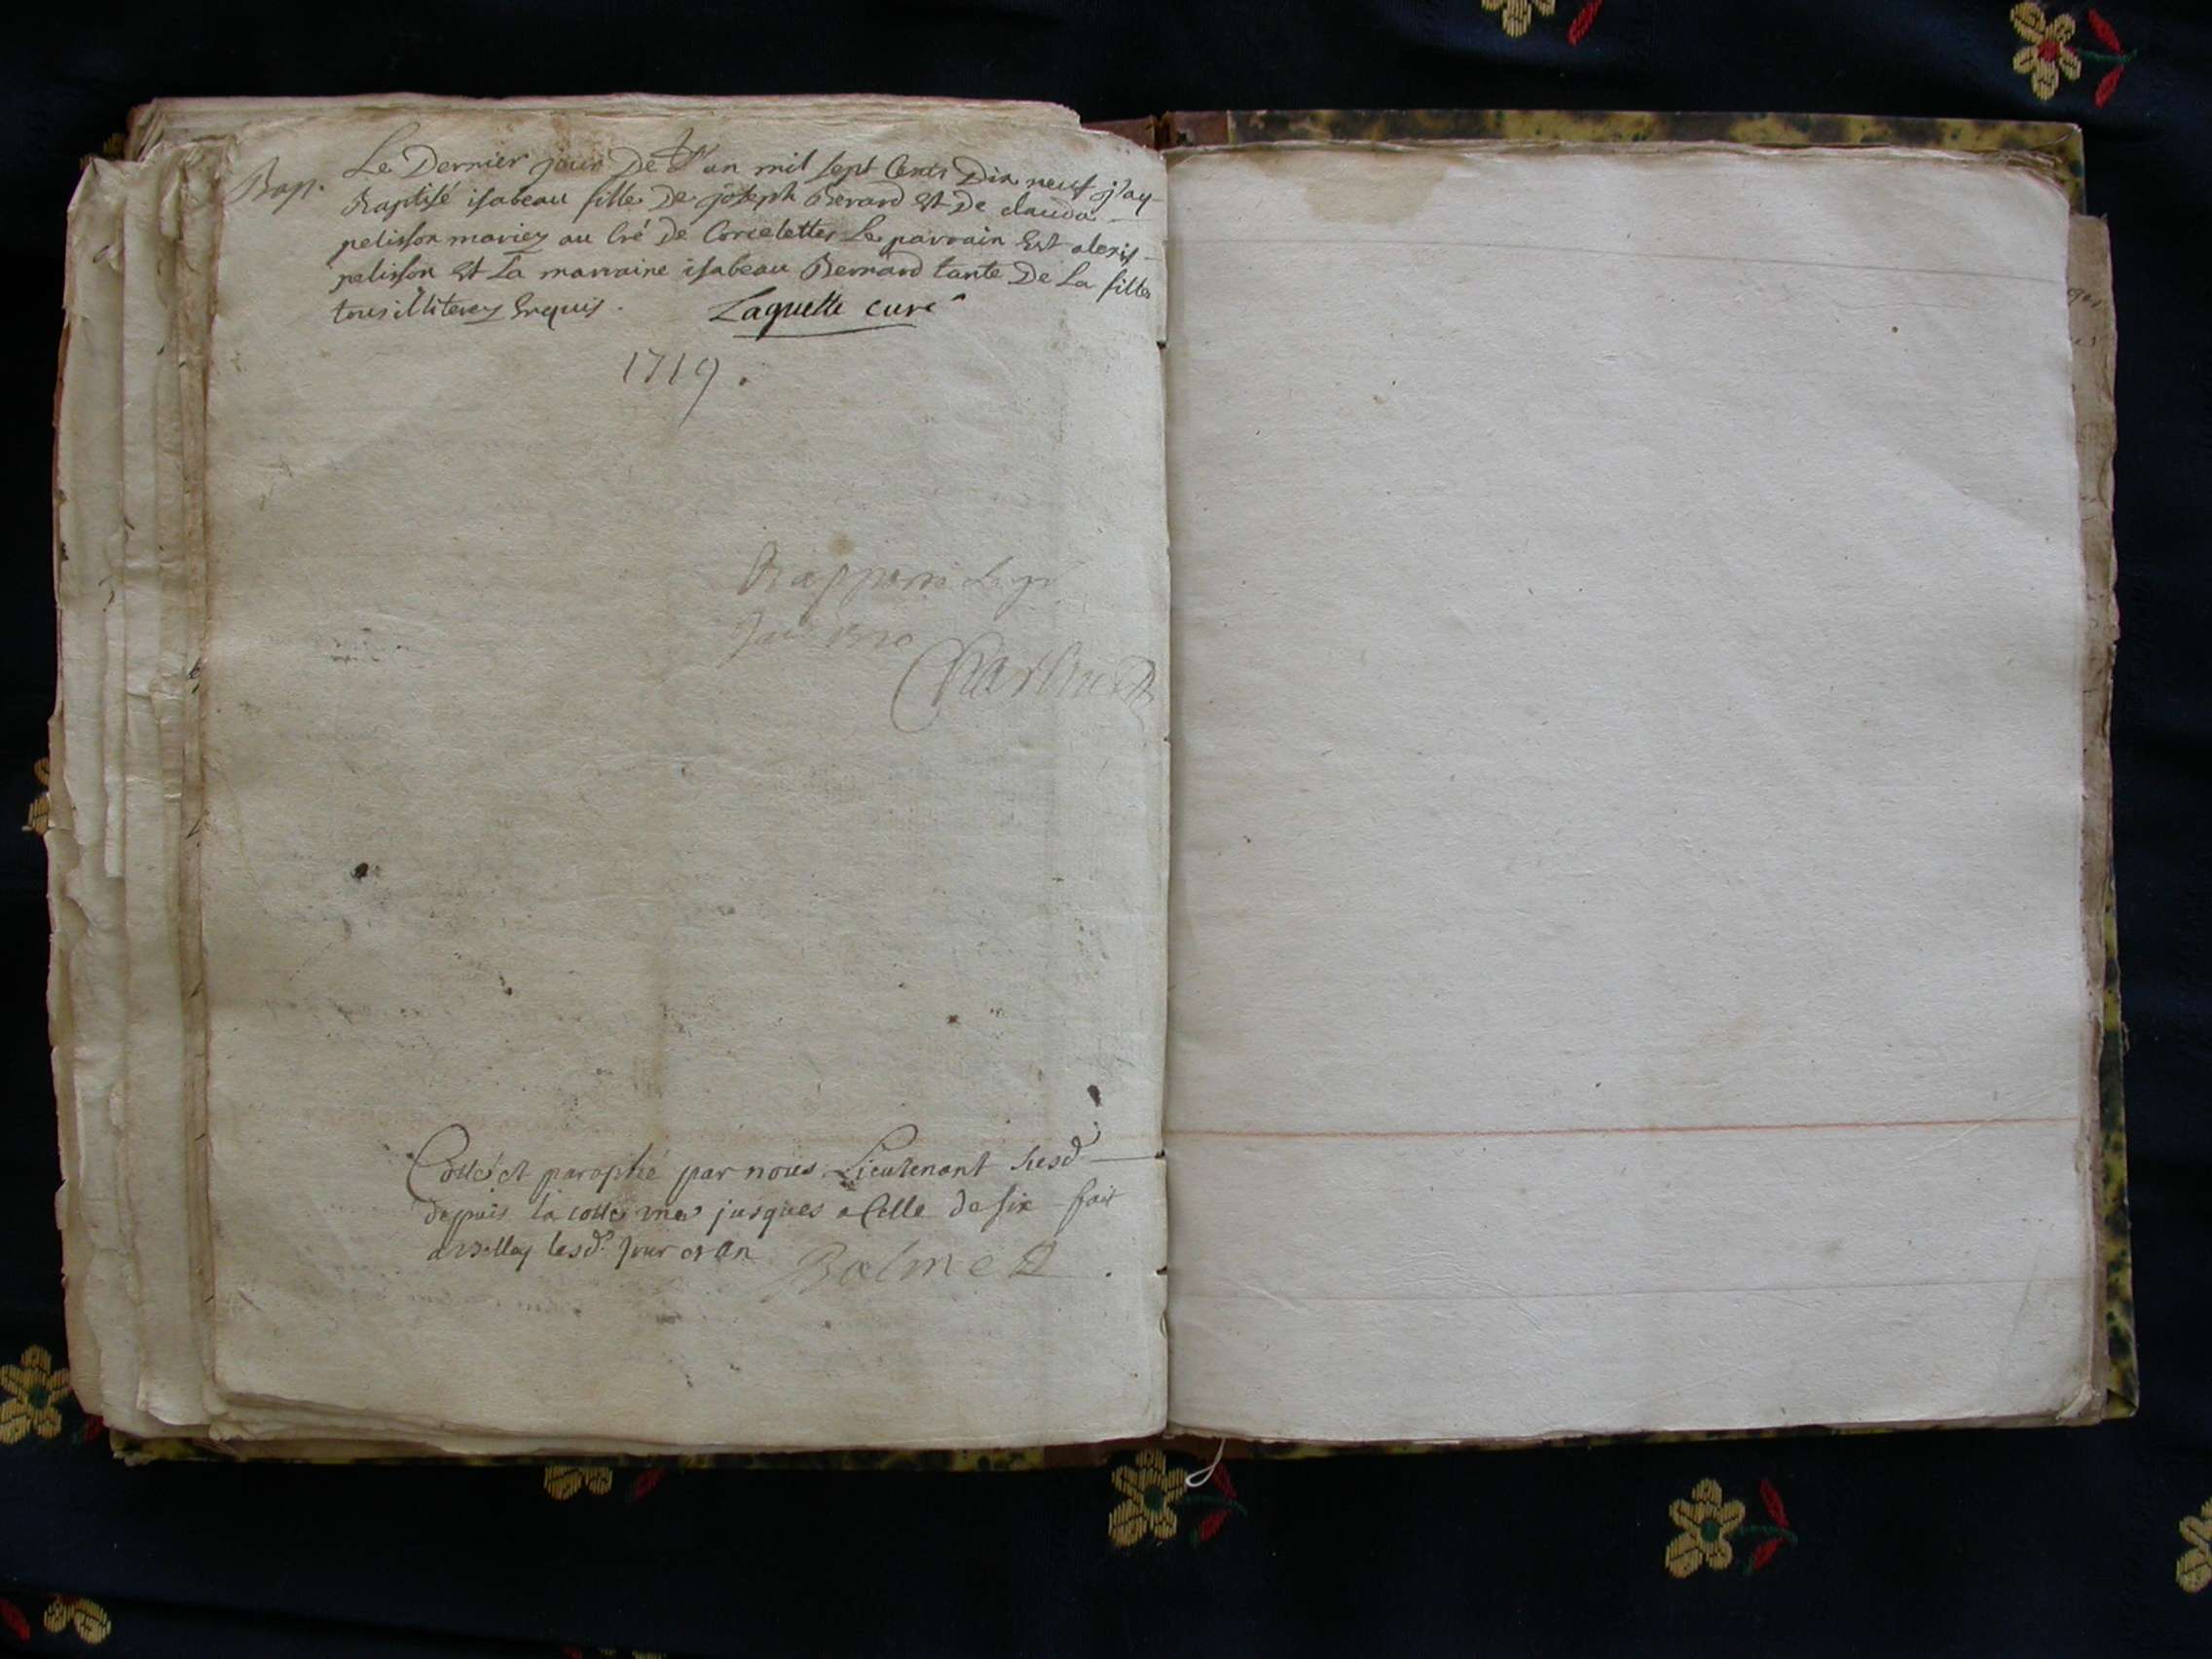 Bap.
Le Dernier jour De L'an mil sept Cents Dix neuf j'ay
Baptisé isabeau fille De joseph Berard Et De clauda
pelisson mariez au Cré De Corcelettes Le parrain Est alexis
pelisson Et La marraine isabeau Bernard tante De La fille
tous illiterez Enquis. Laguette curé
1719.
Rapporté Le
Janv 1720
Cotté et paraphé par nous Lieutenant susd
depuis la cotte une jusques a Celle de six fait
a Belley lesd. Jour et an Balme